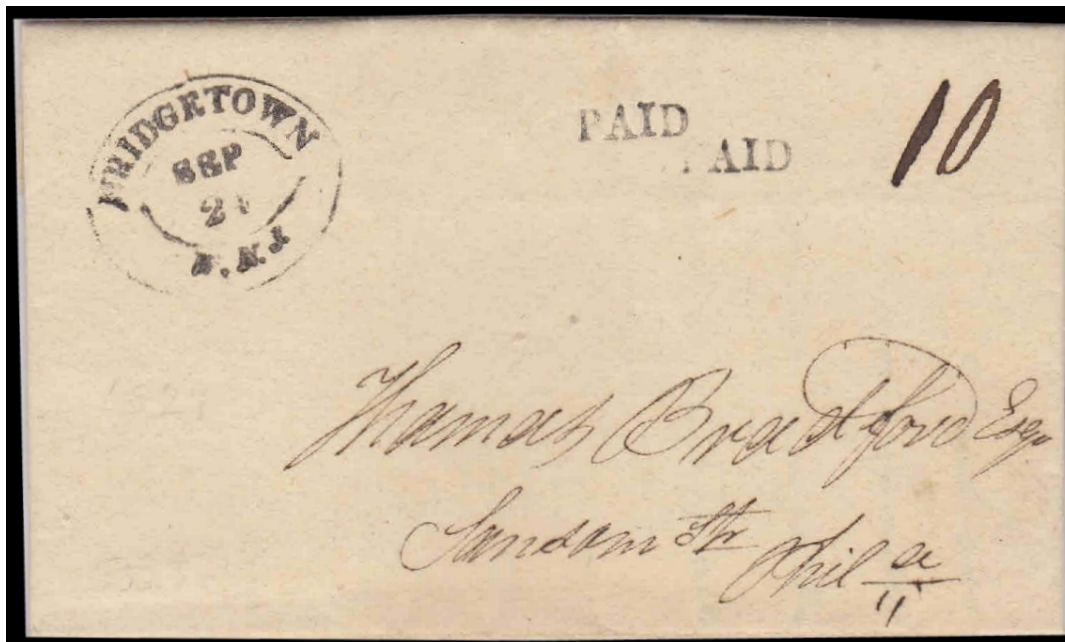 BRIDGETOWN
SEP
W.N.J
PAID
PAID
10
Thomas Bradford Esqr
Sansom Str
Phila